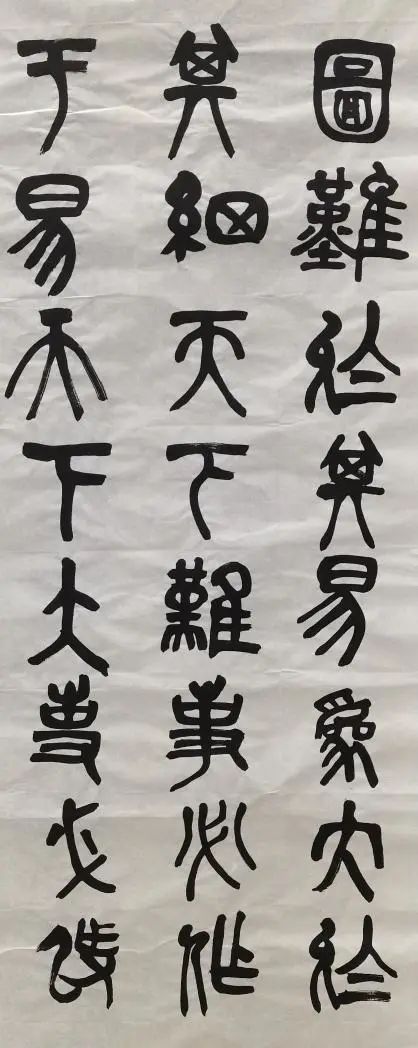 圖難於其易為大於
其細天下難事必作
于易天下大事必作